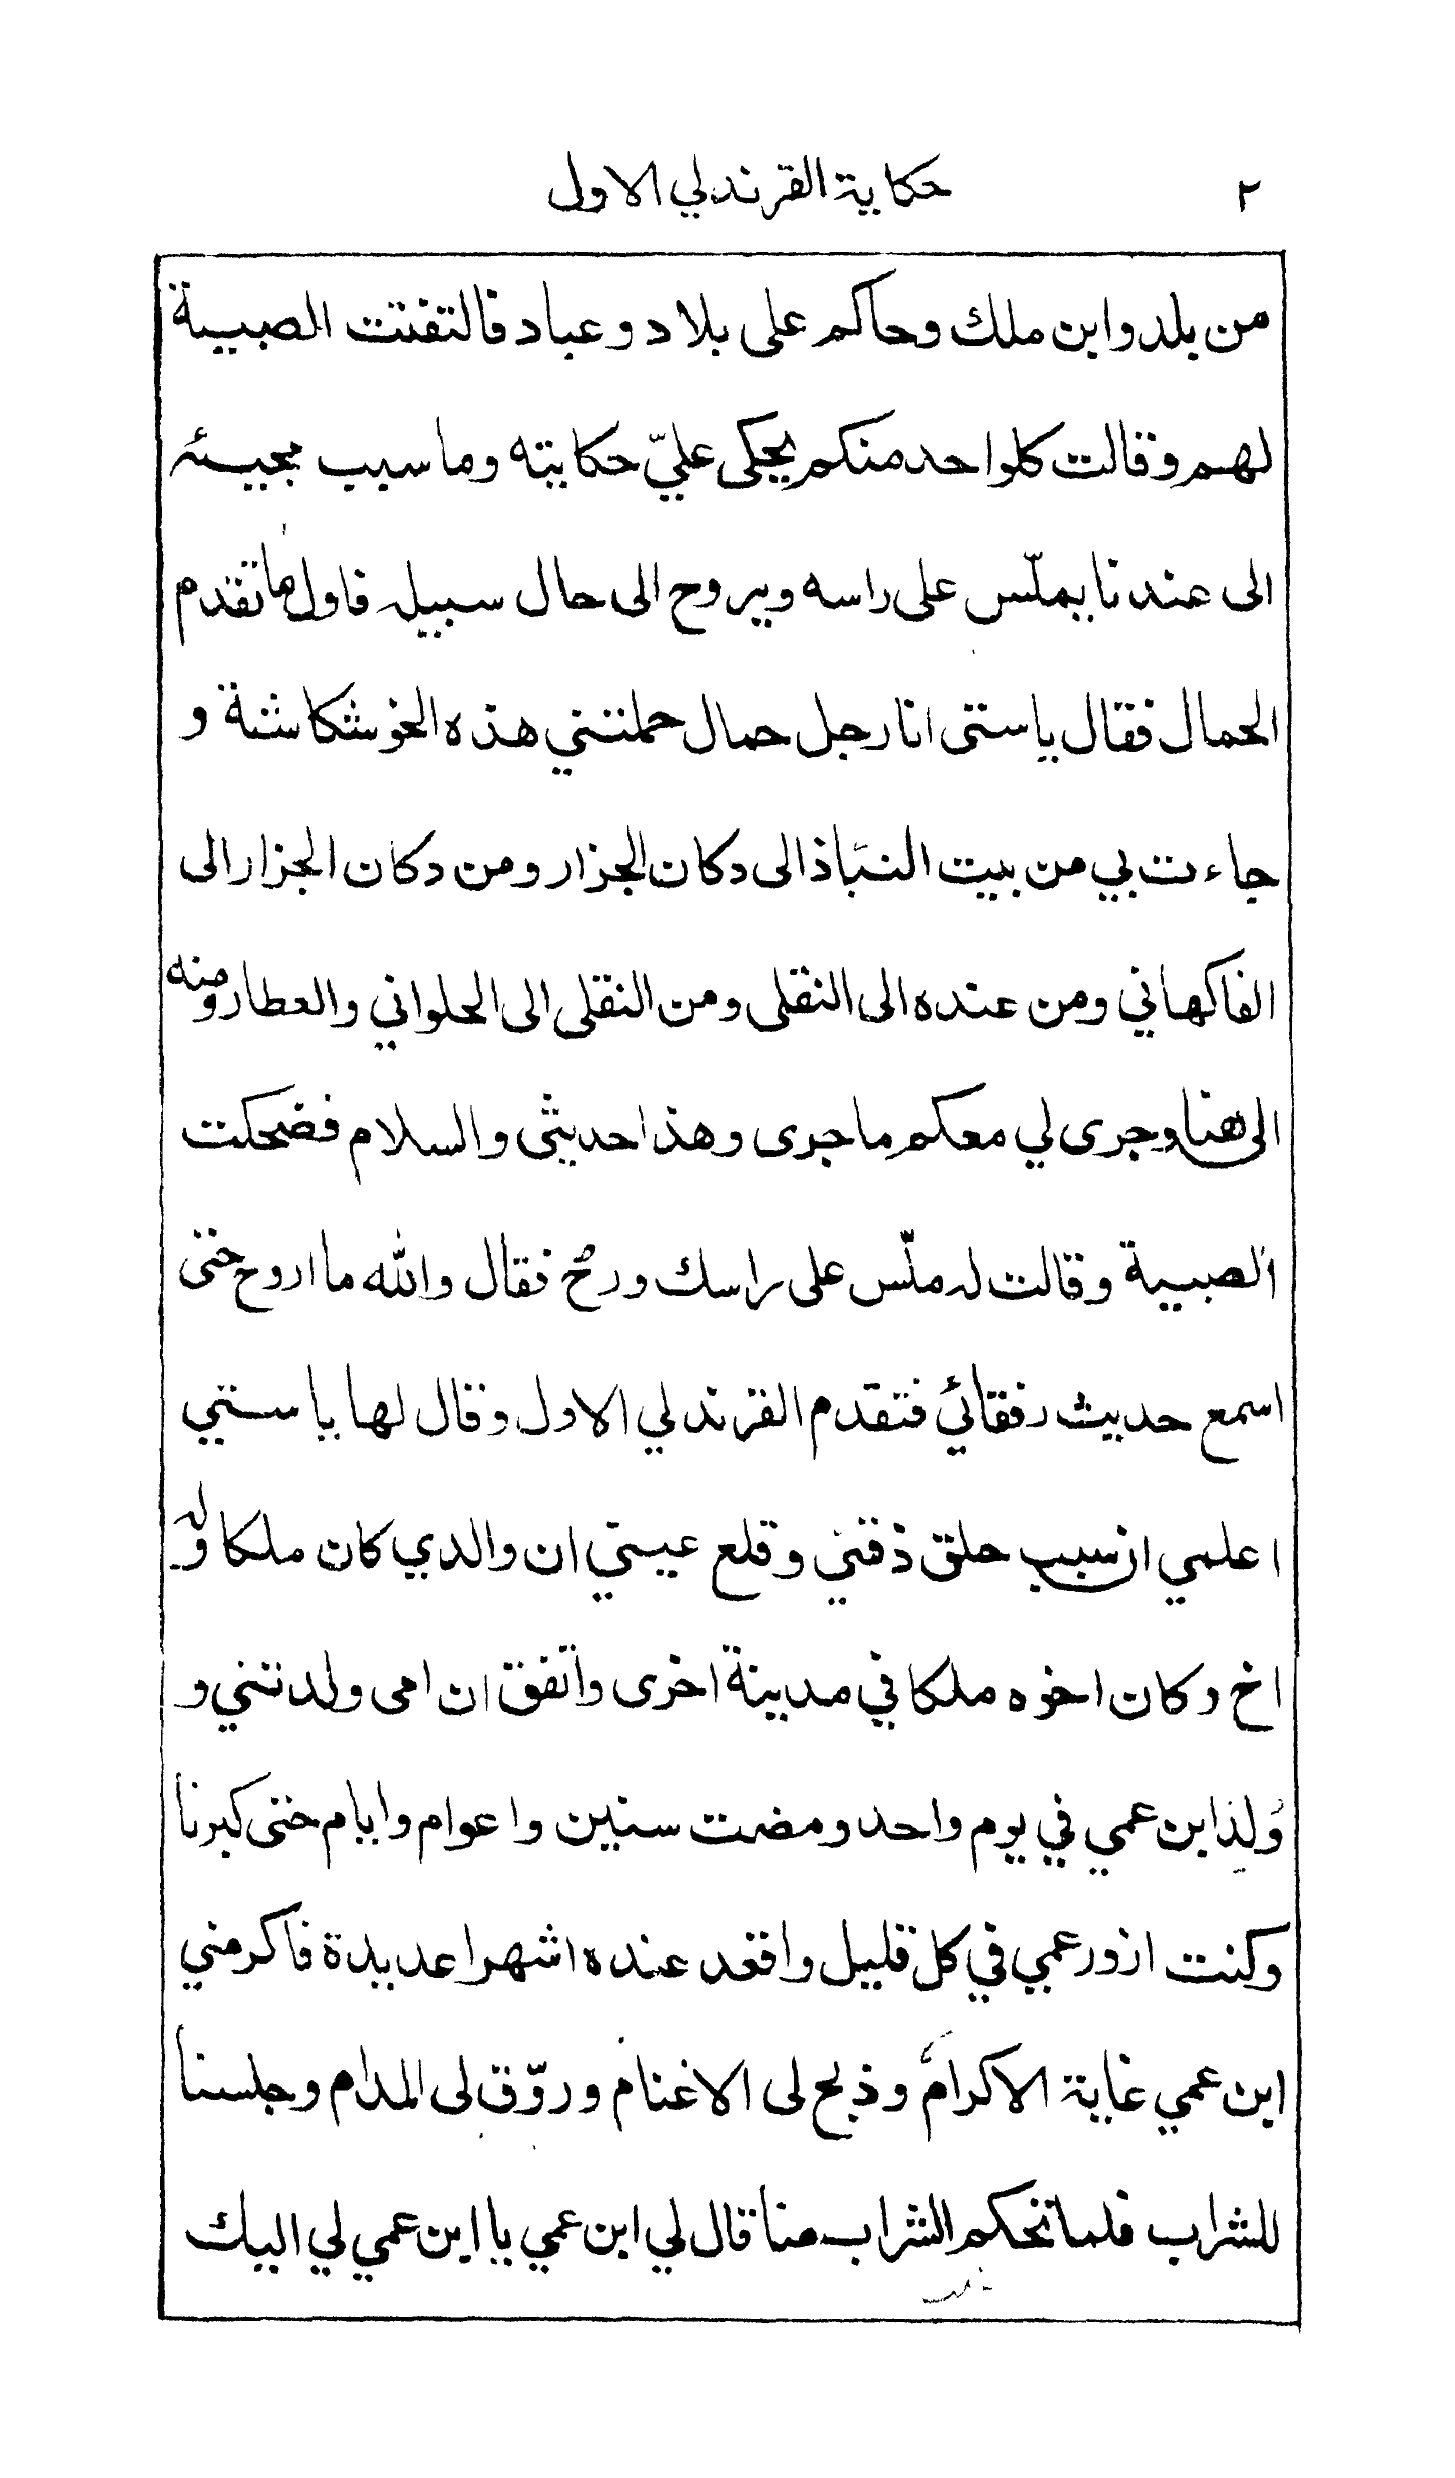 ٢ حكاية القرندلي الاول
من بلد وابن ملك وحاكم على بلاد وعباد فالتفتت الصبية
لهم وقالت كلواحد منكم يحكى عليّ حكايته وما سبب مجيئه
الى عندنا بملّس على راسه ويروح الى حال سبيله فاول ما تقدم
الحمال فقال يا ستى انا رجل حمال حملتني هذه الخوشكاشة و
جاءت بي من بيت النبّاذ الى دكان الجزار ومن دكان الجزار الى
الفاكهاني ومن عنده الى النقلى ومن النقلى الى الحلواني والعطار ومنه
الى هنا وجرى لي معكم ما جرى وهذا حديثى والسلام فضحكت
الصبية وقالت له ملّس على راسك ورح فقال والله ما اروح حتى
اسمع حديث رفقائي فتقدم القرندلي الاول وقال لها يا ستي
اعلمي ان سبب حلق ذقني وقلع عيني ان والدي كان ملكا وله
اخ وكان اخوه ملكا في مدينة اخرى واتفق ان امى ولدتني و
وُلد ابن عمي في يوم واحد ومضت سنين واعوام وايام حتى كبرنا
وكنت ازور عمي في كل قليل واقعد عنده اشهرا عديدة فاكرمني
ابن عمي غاية الاكرام وذبح لى الاغنام وروّق لى المدام وجلسنا
للشراب فلما تحكم الشراب منا قال لي ابن عمي يا ابن عمي لي اليك